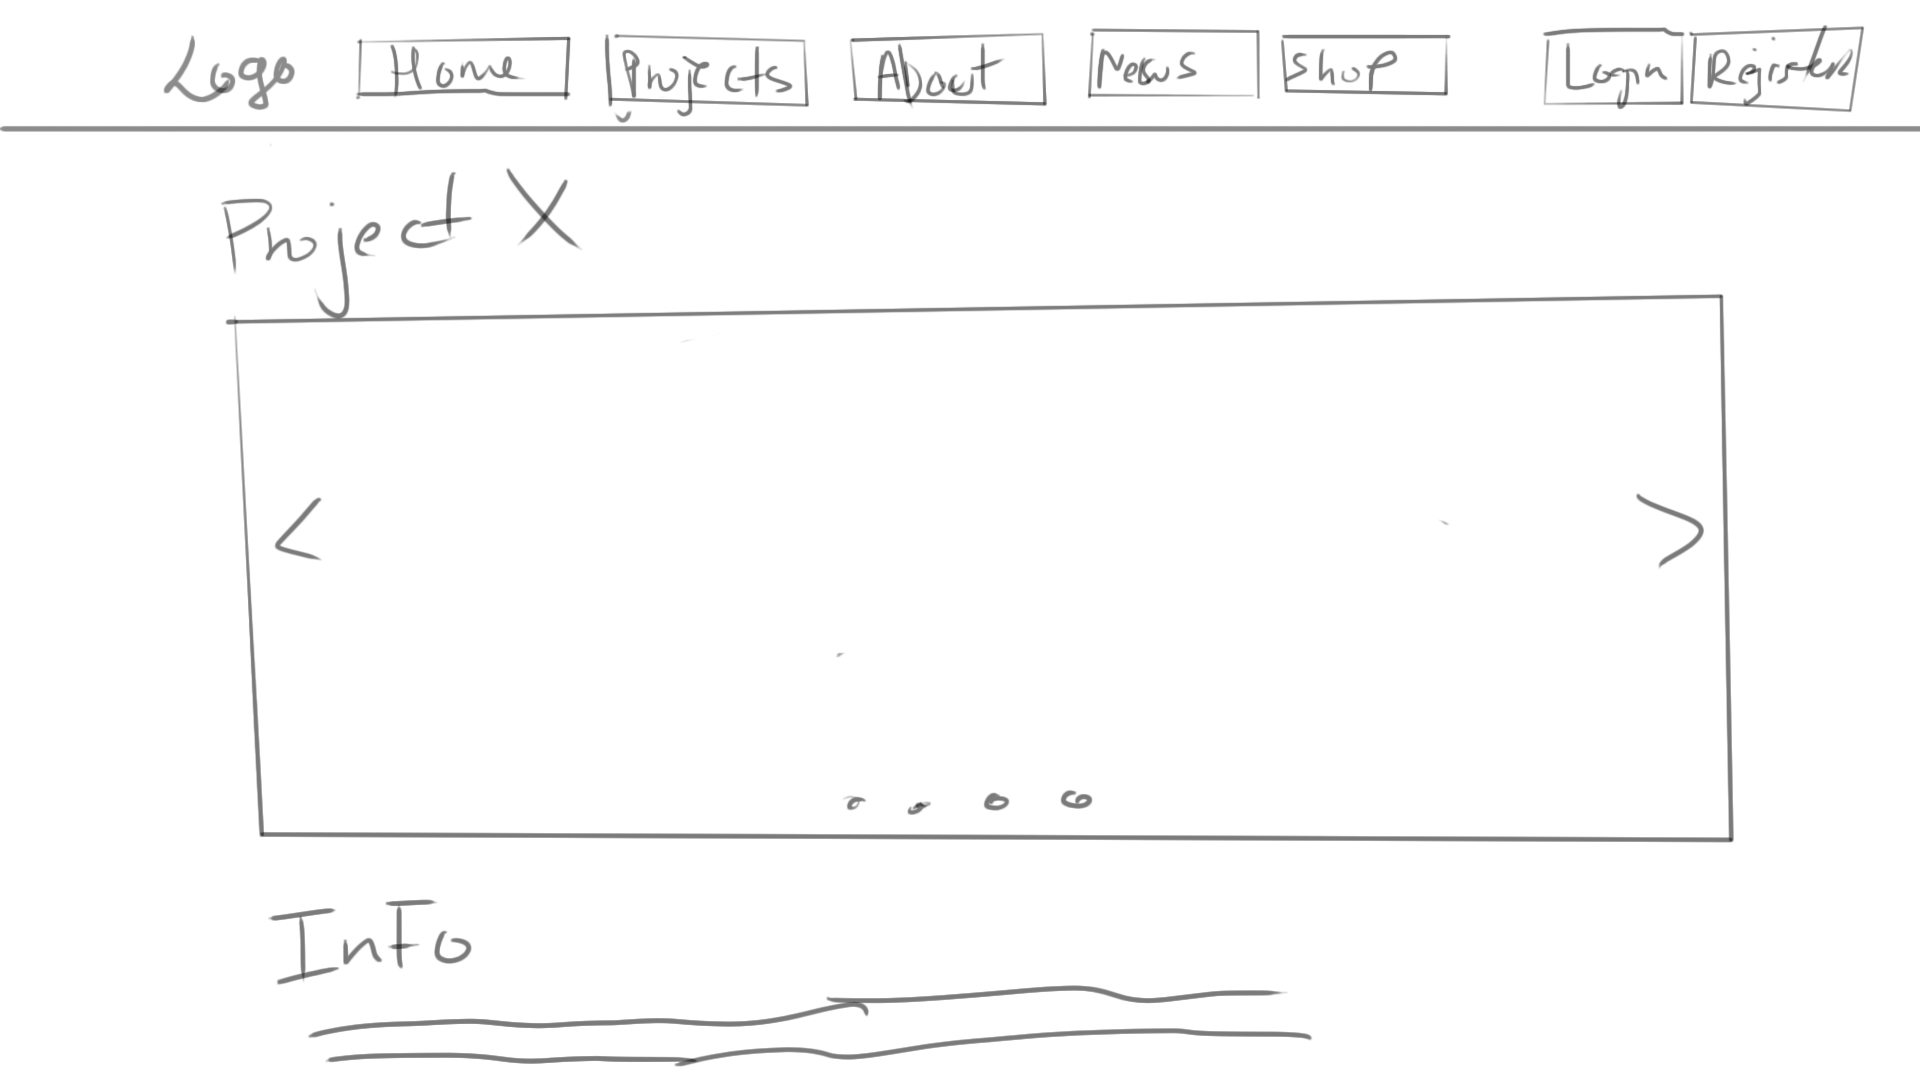 Logo Home Projects About News Shop Login Register
Project X
< >
Info